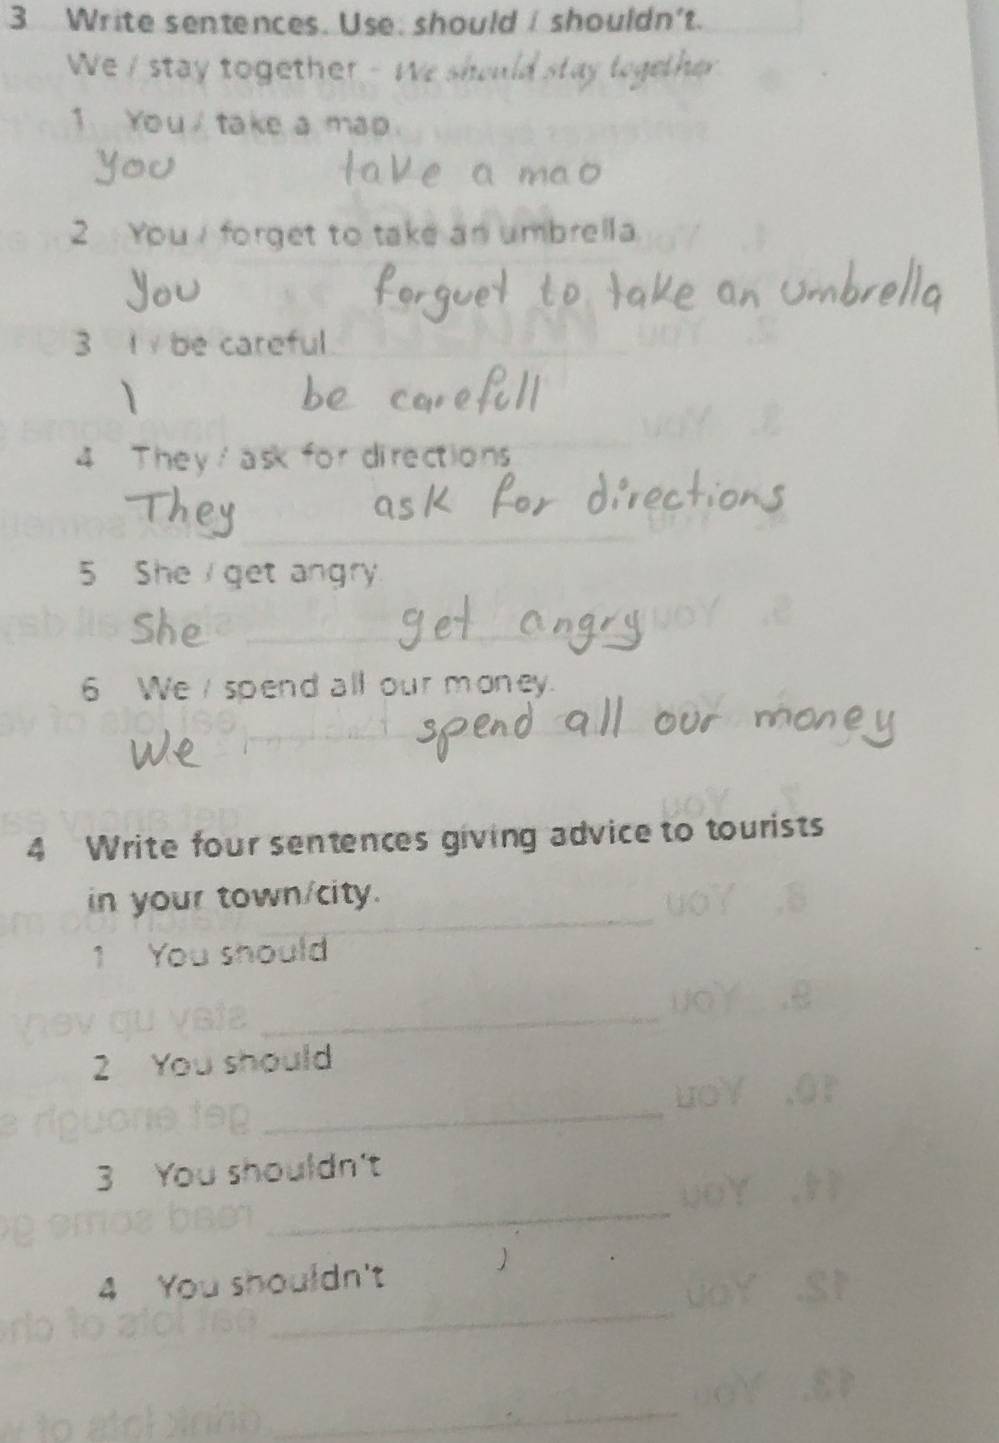 3 Write sentences. Use. should / shouldn't.
We / stay together - We should stay together
1 You / take a map.
you take a mao
2 You / forget to take an umbrella
you forguet to take an umbrella
3 I / be careful
I be carefull
4 They / ask for directions
They ask for directions
5 She / get angry
She get angry
6 We / spend all our money.
We spend all our money
4 Write four sentences giving advice to tourists
in your town/city.
1 You should
2 You should
3 You shouldn't
4 You shouldn't